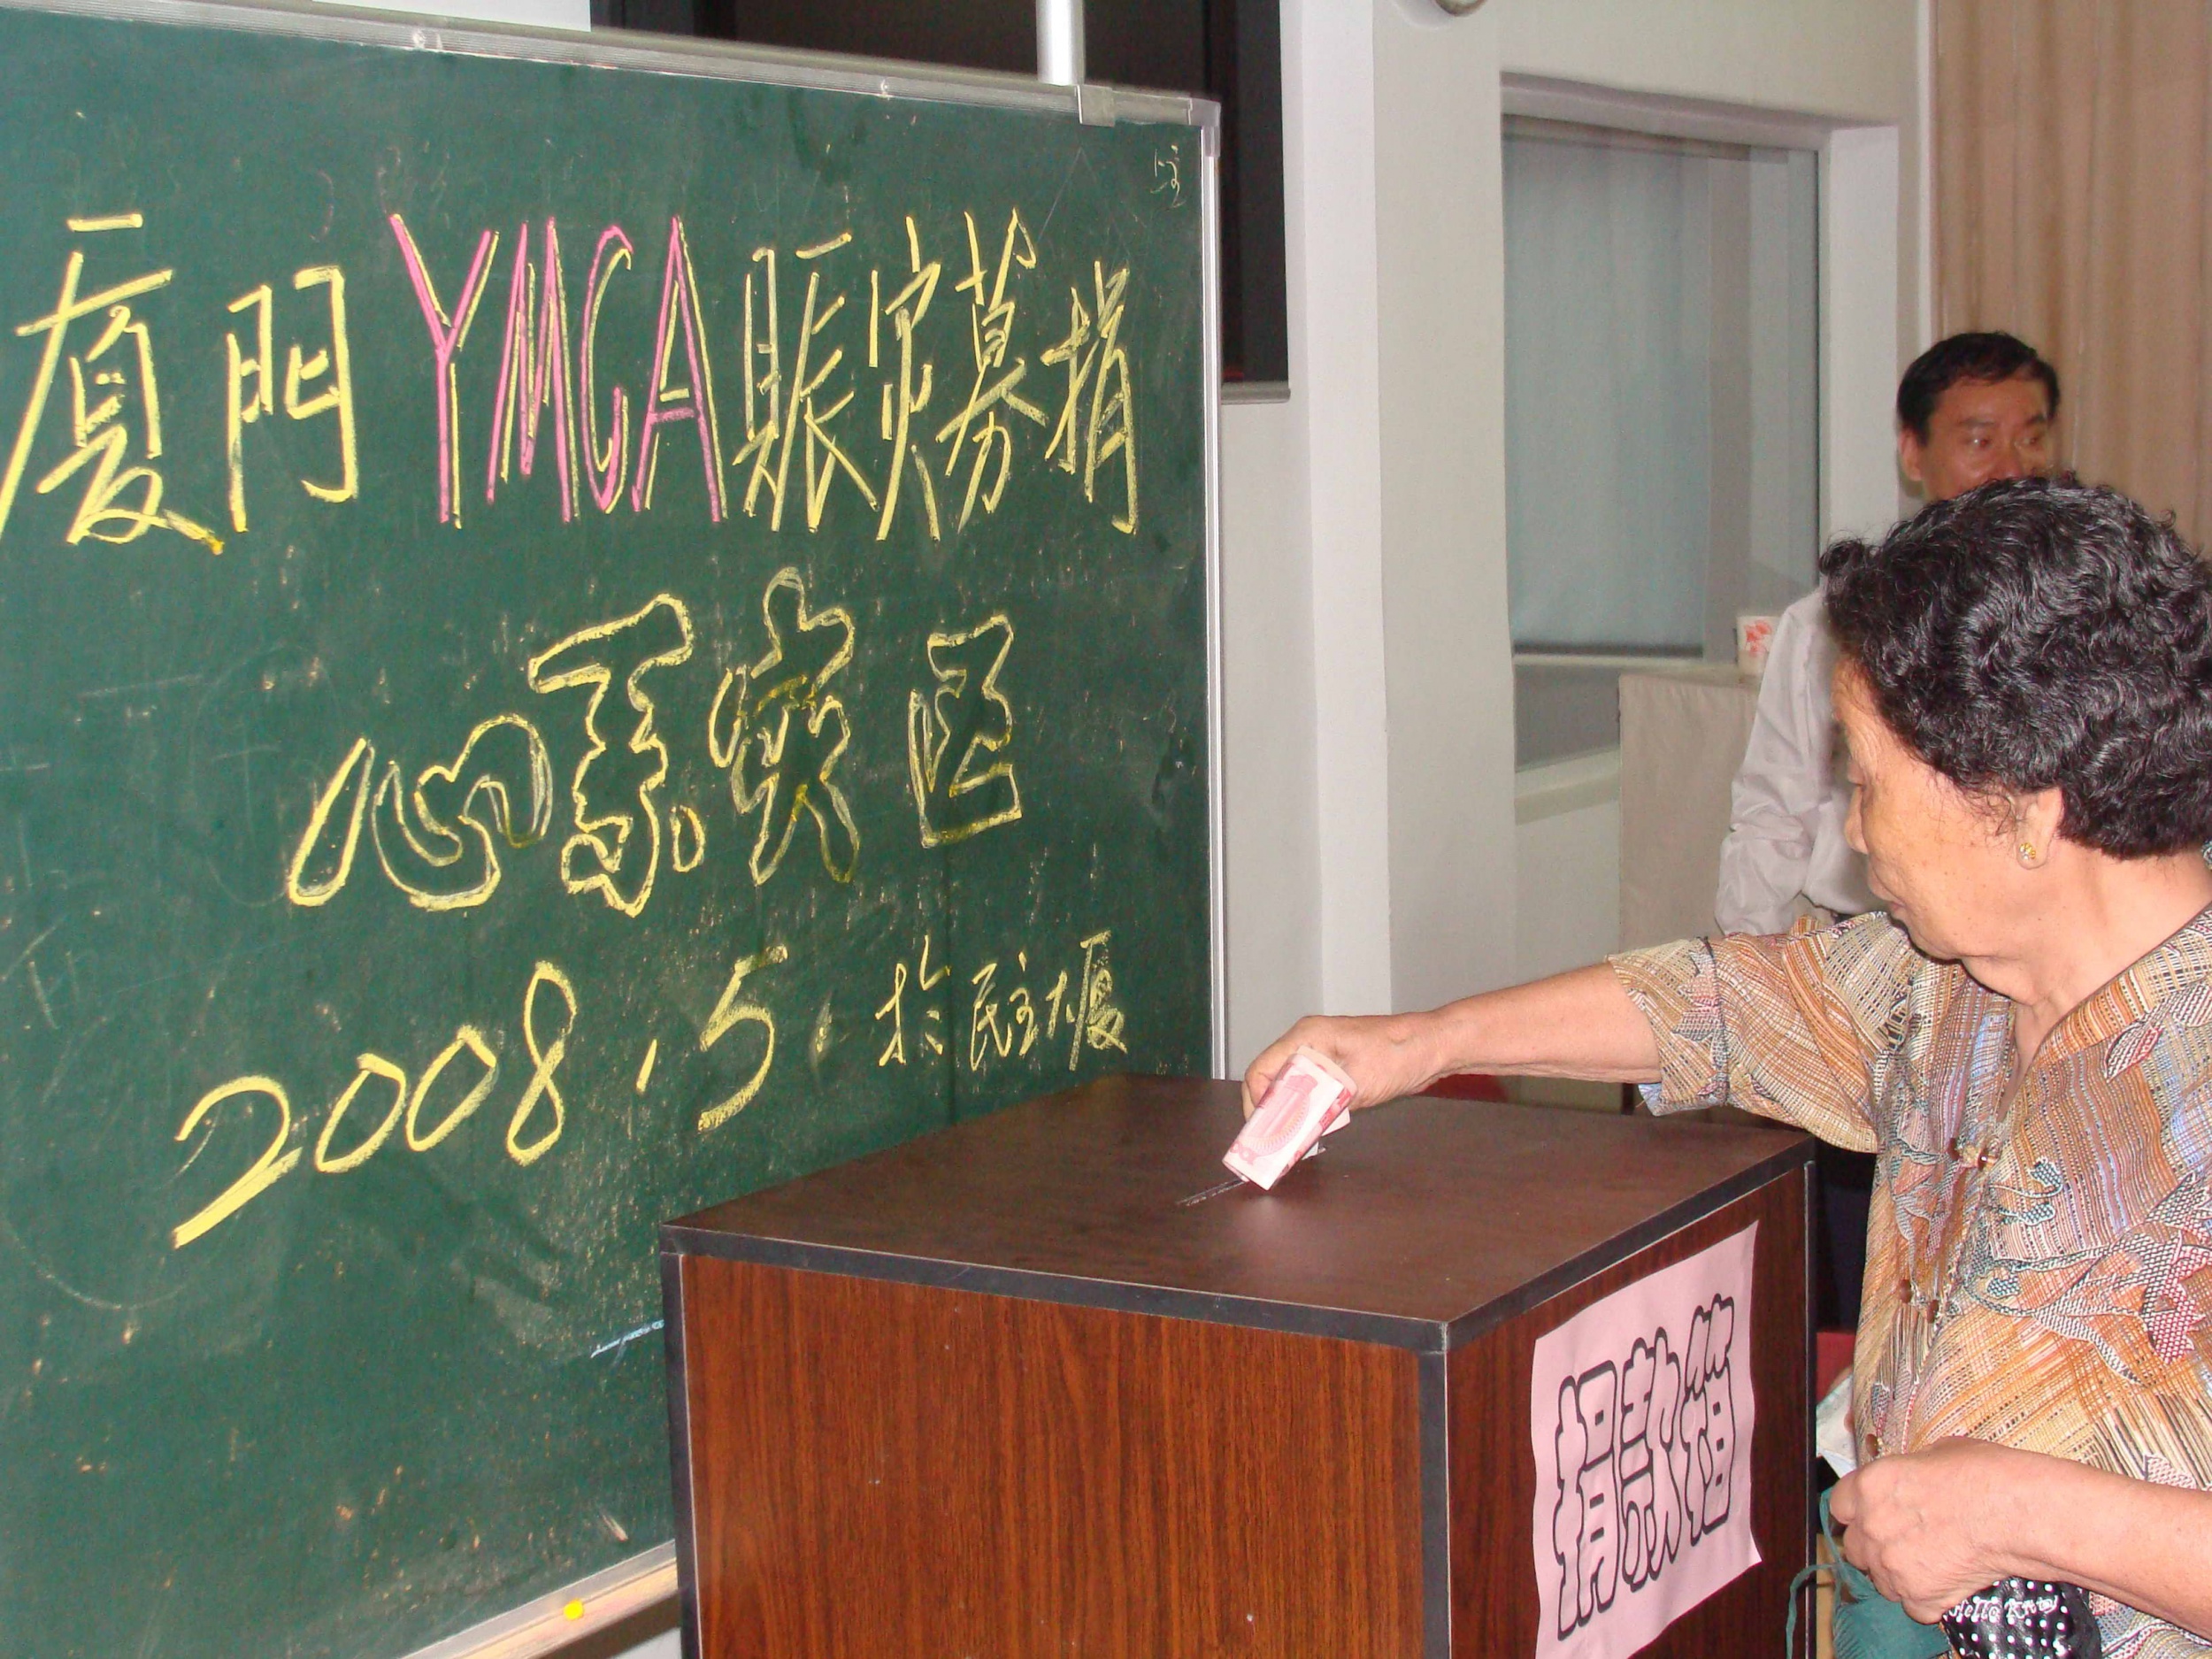 厦門YMCA賑灾募捐
心系灾区
2008.5.於民主大厦
捐款箱
Hello Kitty